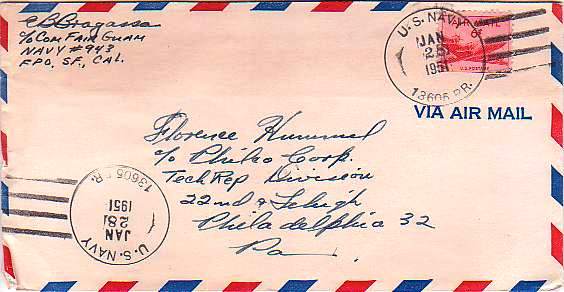 C B Bragassa
c/o Com Fair Guam
NAVY #943
FPO, SF, CAL.
U.S. NAVY
JAN
28
1951
13605 BR.
AIR MAIL
6¢
U.S. POSTAGE
VIA AIR MAIL
Florence Hummel
c/o Philco Corp.
Tech Rep Division
22nd & Lehigh
Philadelphia 32
Pa.
13605 BR.
1951
28
JAN
U.S. NAVY